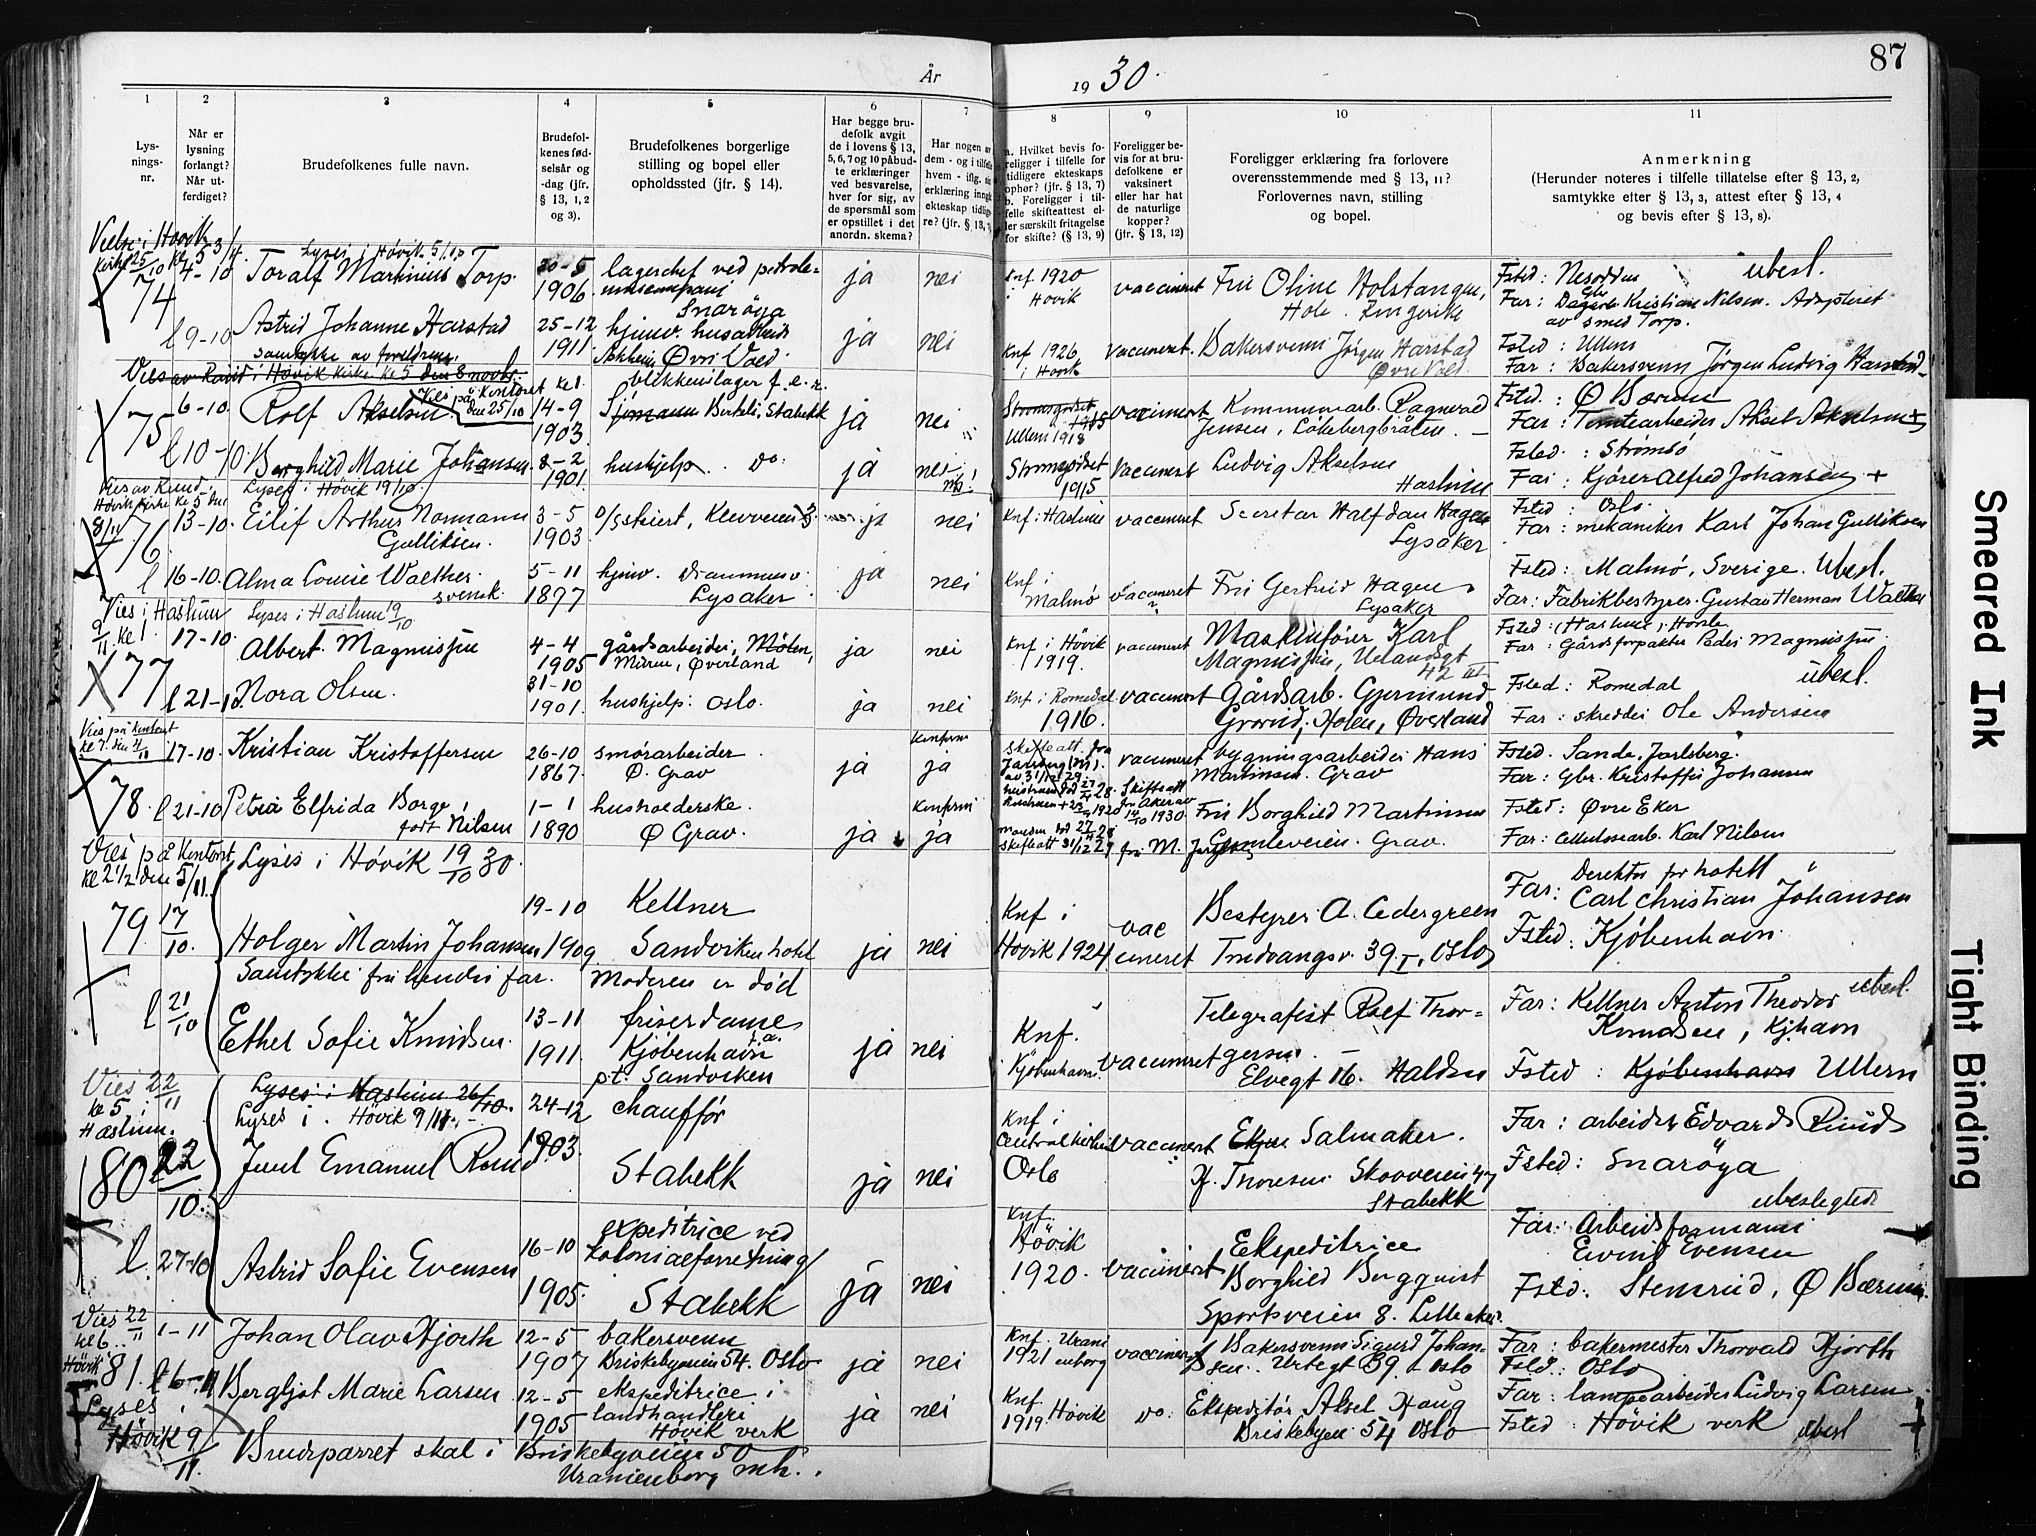 År 1930.
87
1
2
3
4
5
6
7
8
9
10
11
Lys-
nings-
nr.
Når er
lysning
forlangt?
Når ut-
ferdiget?
Brudefolkenes fulle navn.
Brudefol-
kenes fød-
selsår og
-dag (jfr.
§ 13, 1, 2
og 3).
Brudefolkenes borgerlige
stilling og bopel eller
opholdssted (jfr. § 14).
Har begge bru-
defolk avgit
de i lovens § 13,
5, 6, 7 og 10 påbud-
te erklæringer
ved besvarelse,
hver for sig, av
de spørsmål som
er opstillet i det
anordn. skema?
Har nogen av
dem - og i tilfelle
hvem - iflg. sin
erklæring inngått
ekteskap tidlige-
re? (jfr. § 13,
a. Hvilket bevis fo-
religger i tilfelle for
tidligere ekteskaps
ophør? (jfr. § 13, 7)
b. Foreligger i til-
felle skifteattest el-
ler særskilt fritagelse
for skifte? (§ 13, 9)
Foreligger be-
vis for at bru-
defolkene er
vaksinert
eller har hat
de naturlige
kopper?
(jfr. § 13, 12)
Foreligger erklæring fra forlovere
overensstemmende med § 13, 11?
Forlovernes navn, stilling
og bopel.
Anmerkning
(Herunder noteres i tilfelle tillatelse efter § 13, 2,
samtykke efter § 13, 3, attest efter § 13, 4
og bevis efter § 13, 8).
Vielse i Høvik
kirke 25/10 kl 5 3/4.
Lyses i Høvik 5/10
74
4-10
Toralf Martinius Torp.
30-5
1906.
lagerchef ved petrole-
umscompani
Snarøya
ja
nei
Knf 1920
i Høvik
vaccineret
Fru Oline Holstangen,
Hole. Ringerike
Fsted: Nesodden
ubesl.
Far: Gbr Kristian Nilsen. Adopteret
av smed Torp.
l 9-10
Astrid Johanne Harstad
samtykke av foreldrene.
25-12
1911.
hjemv. husarbeid
Øvre Voll.
ja
nei
Knf 1926
i Høvik
vaccineret.
Bakersvenn Jørgen Harstad
Øvre Voll.
Fsted: Ullern
Far: Bakersvenn Jørgen Ludvig Harstad
Vies av Ruud i Høvik kirke kl 5 den 8 novbr.
Vies på Kontoret kl 1.
den 25/10
75
6-10.
Rolf Akselsen
14-9
1903.
blikkenslager f. e. r.
Sjømann Berteli, Stabekk
ja
nei
Strømsgodset
1915
Ullern 1918
vaccineret
Kommunearb. Ragnvald
Jensen, Løkebergbråten.
Fsted: Ø Bærum
Far: Tomtearbeider Aksel Akselsen +
l 10-10.
Borghild Marie Johansen
8-2
1901
hushjelp.. do.
ja
nei
Strømsgodset
1915
Vaccineret
Ludvig Akselsen
Haslum
Fsted: Strømsø
Far: Kjører Alfred Johansen +
Vies av Ruud,
Høvik kirke kl 5 den
8/11
Lyses i Høvik 19/10
76
13-10.
Eilif Arthur Normann
Gulliksen.
3-5
1903.
ja
nei
Knf: Haslum
vaccineret
Secretær Halfdan Hagen
Lysaker
Fsted: Oslo.
Far: mekaniker Karl Johan Gulliksen
l 16-10.
Alma Louise Walther.
svensk.
5-11
1897
hjemv. Drammensv.
Lysaker
ja
nei
Knf i
Malmø
vaccineret
Fru Gertrud Hagen
Lysaker
Fsted: Malmø, Sverige. Ubesl.
Far: Fabrikbestyrer Gustav Herman Walther
Vies i Haslum
9/11 kl 1.
Lyses i Haslum 19/10
77
17-10.
Albert Magnussen
4-4
1905
gårdsarbeider, Mølen,
Muren, Øverland
ja
nei
Knf i Høvik
1919.
vaccineret
Maskinfører Karl
Magnussen, Uelandsgt
42 III
Fsted: (Haslum), Hosle
Far: Gårdsforpakter Peder Magnussen.
l 21-10.
Nora Olsen.
31-10
1901.
hushjelp: Oslo.
ja
nei
Knf i Romedal
1916.
vaccineret
Gårdsarb. Gjermund
Grønud, Holen, Øverland
Fsted: Romedal
ubesl.
Far: skredder Ole Andersen
Vies på Kontoret
kl 7. den 4/11
78.
17-10.
Kristian Kristoffersen
26-10
1867.
smørarbeider
Ø. Grav
ja
Konfirm
ja
Skifteatt. fra
Jarlsberg (M).
av 31/12 29.
vaccineret
bygningsarbeider Hans
Martinsen. Grav
Fsted. Sande, Jarlsberg.
Far: Gbr. Kristoffer Johansen
l 21-10
Petra Elfrida Borge,
født Nilsen
1-1
1890
husholderske.
Ø Grav.
ja
Konfirm
ja
Skifteatt
fra Aker av
14/10 1930.
Fru Borghild Martinsen
Gamleveien. Grav.
Fsted: Øvre Eker
Far: Cellulosearb. Karl Nilsen
Vies på Kontoret
kl 2 1/2 den 5/11.
Lyses i Høvik 19/10 30.
79.
17/10.
Holger Martin Johansen
19-10
1909.
Kellner
Sandviken hotel
ja
nei
Knf i
Høvik 1924
vac
cineret
Bestyrer A. Cedergreen
Trudvangsv. 39 I, Oslo
Far: Derektør for hotell
Carl Christian Johansen
Fsted: Kjøbenhavn.
Samtykke fra hendes far. Moderen er død
l 21/10
Ethel Sofie Knudsen.
13-11
1911.
friserdame
Kjøbenhavn
p.t. Sandviken
ja
nei
Knf.
i Kjøbenhavn.
vaccineret
Telegrafist Rolf Thor-
gersen.
Elvegt 16. Halden
Far: Kellner Anton Theodor
Knudsen, Kjhavn
ubesl.
Fsted: Kjøbenhavn Ullern
Vies 22/11
kl 5, i
Haslum.
Lyses i Haslum 26/10.
Lyses i. Høvik 9/11.
80
22/10.
Juul Emanuel Ruud
24-12
1903.
chauffør
Stabekk
ja
nei
Knf i
Centralkirken
Oslo
vaccineret
Ekjn. Salmaker.
H. Thoresen Skovveien 47
Stabekk
Far: arbeider Edvard Ruud
Fsted: Snarøya
ubeslegtede
l. 27-10
Astrid Sofie Evensen
16-10
1905.
expeditrice ved
kolonialforretning
Stabekk
ja
nei
Knf
Høvik
1920.
vaccineret
Ekspeditrice
Borghild Bergquist
Sportsveien 8. Lilleaker.
Far: Arbeidsformann
Eivind Evensen
Fsted. Stensrud, Ø Bærum.
Vies 22/11
kl 6..
Høvik
81.
1-11
Johan Olav Hjorth
12-5
1907
bakersvenn
Briskebyveien 54. Oslo
ja
nei
Knf. Urani
1921 enborg
vaccineret
Bakersvenn Sigurd Johan-
sen. Urtegt 39. Oslo
Far: bakermester Thorvald Hjorth
Fsted: Oslo
l 6-11
Bergljot Marie Larsen
12-5
1905
ekspeditrice i
landhandleri
Høvik verk
ja
nei
Knf
1919. Høvik
do.
Ekspeditør Aksel Haug
Briskebyvn 54 Oslo
Far: lampearbeider Ludvig Larsen
Fsted: Høvik verk
ubesl
Lyses i
Høvik 9/11.
Brudeparret skal i Briskebyveien 50
Uranienborg mh.
Smeared Ink
Tight Binding